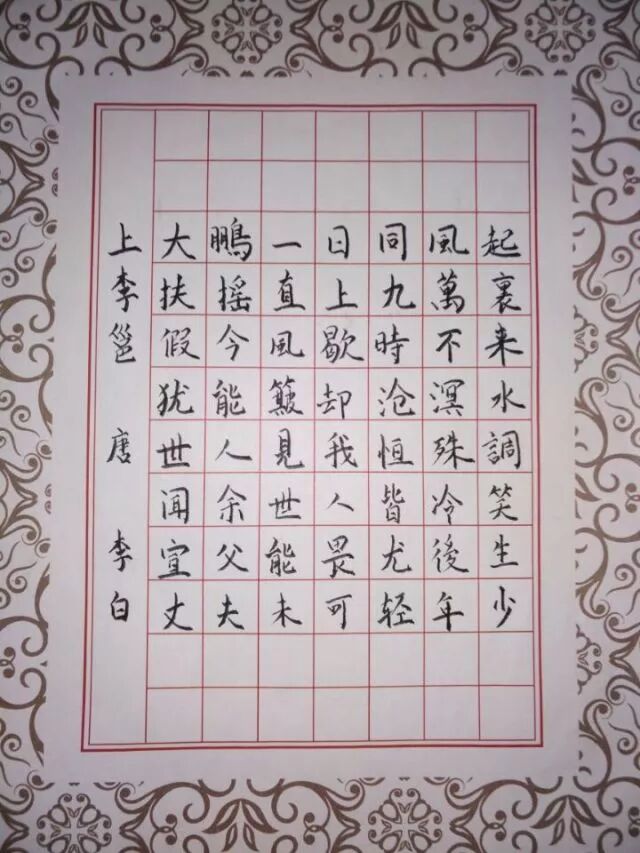 上李邕 唐 李白
大鵬一日同風起
扶摇直上九萬裏
假今風歇時不来
犹能簸却沧溟水
世人見我恒殊調
闻余世人皆冷笑
宣父能畏尤後生
丈夫未可轻年少